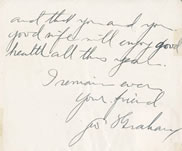 and that you and your
good wife will enjoy good
health all this year.
I remain ever
your friend
Graham